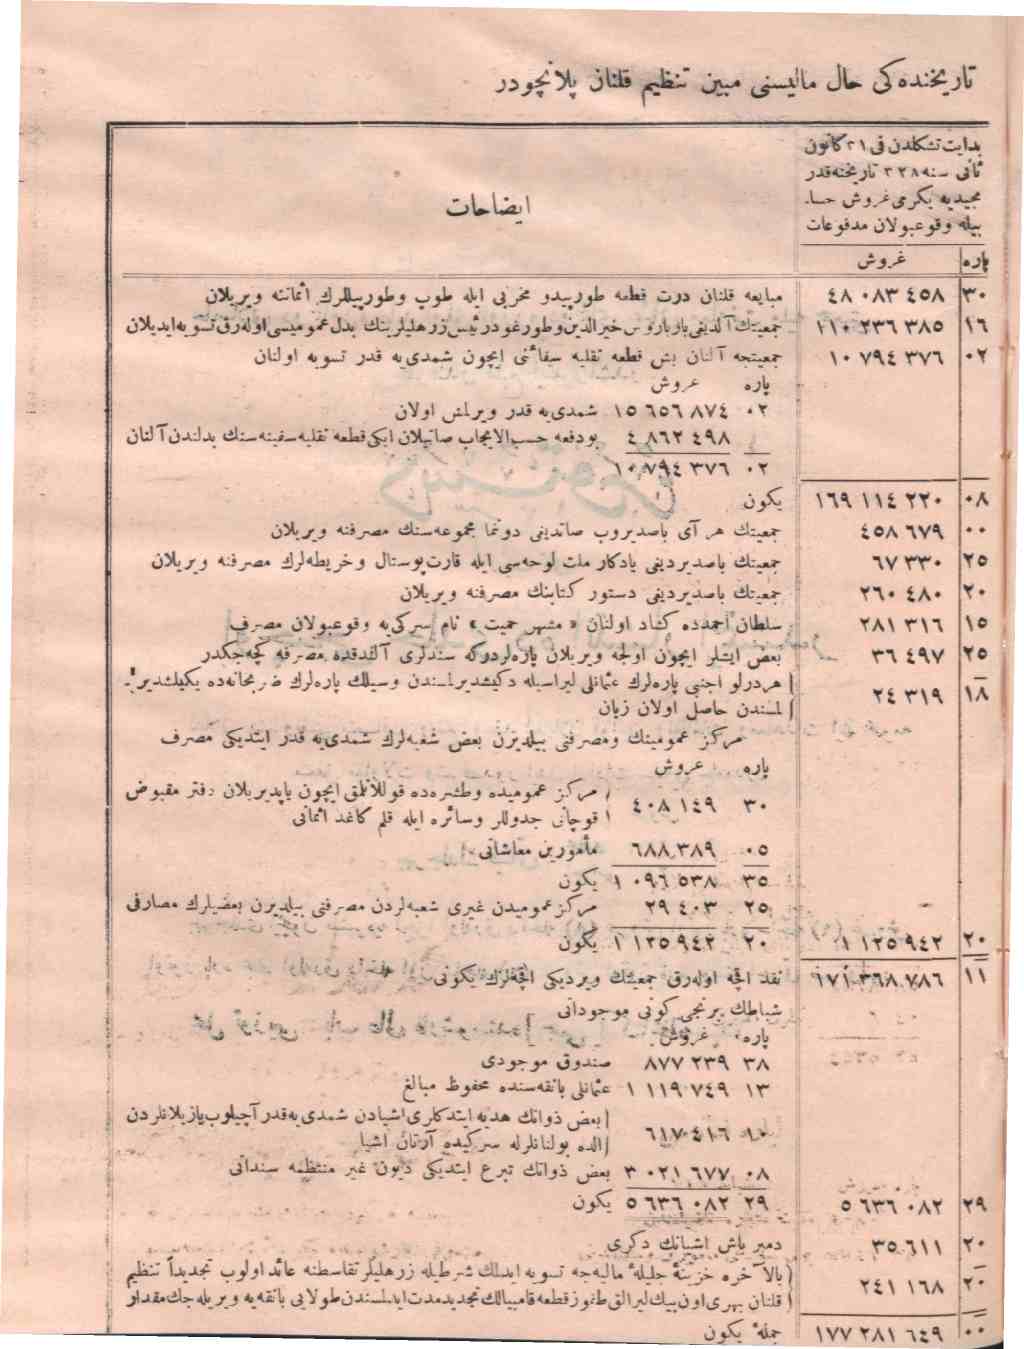 تاریخنده‌کی حال مالیسنی مبین تنظیم قلنان پلانچودر
بدایت تشکلدن فی ٣١ کانون
ثانی سنه ٣٢٨ تاریخنه قدر
مجیدیه یکرمی غروش حسا-
بیله وقوعبولان مدفوعات
ایضاحات
پاره غروش
٣٠ ٤٨ ٠٨٣ ٤٥٨ مبایعه قلنان درت قطعه طورپیدو مخربی ایله طوپ وطورپیللرك اثماننه ویریلان
١٦ ١١٠ ٢٣٦ ٣٨٥ جمعیتك آلدیغی بارباروس خیرالدین وطورغود رئیس زرهلیلرینك بدل عمومیسی اوله‌رق تسویه ایدیلان
٠٢ ١٠ ٧٩٤ ٣٧٦ جمعیتجه آلنان بش قطعه نقلیه سفائنی ایچون شمدی‌یه قدر تسویه اولنان
پاره غروش
٠٢ ١٥ ٦٥٦ ٨٧٤ شمدی‌یه قدر ویرلمش اولان
٤ ٨٦٢ ٤٩٨ بودفعه حسب‌الایجاب صاتیلان ایکی قطعه نقلیه سفینه‌سنك بدلندن آلنان
٠٢ ١٠ ٧٩٤ ٣٧٦
٠٨ ١٦٩ ١١٤ ٢٢٠ یکون
٠٠ ٤٥٨ ٦٧٩ جمعیتك هر آی باصدیروب صاتدیغی دوننما مجموعه‌سنك مصرفنه ویریلان
٢٥ ٦٧ ٣٣٠ جمعیتك باصدیردیغی یادکار ملت لوحه‌سی ایله قارت‌پوستال وخریطه‌لرك مصرفنه ویریلان
٢٠ ٢٦٠ ٤٨٠ جمعیتك باصدیردیغی دستور کتابنك مصرفنه ویریلان
١٥ ٢٨١ ٣١٦ سلطان احمدده کشاد اولنان « مشهر حمیت » نام سرکی‌یه وقوعبولان مصرف
٢٥ ٣٦ ٤٩٧ بعض ایشلر ایچون اولجه ویریلان پاره‌لردرکه سندلری آلندقده مصرفه کچه‌جکدر
١٨ ٢٤ ٣١٩ هردرلو اجنبی پاره‌لرك عثمانلی لیراسیله دکیشدیرلمسندن وسیلك پاره‌لرك ضربخانه‌ده یکیلشدیر-
لمسندن حاصل اولان زیان
مرکز عمومینك ومصرفنی بیلدیرن بعض شعبه‌لرك شمدی‌یه قدر ایتدیکی مصرف
پاره غروش
٣٠ ٤٠٨ ١٤٩ مرکز عمومیده وطشره‌ده قوللانلمق ایچون یاپدیریلان دفتر مقبوض
قوچانی جدوللر وسائره ایله قلم کاغد اثمانی
٠٥ ٦٨٨ ٣٨٩ مأمورین معاشاتی
٣٥ ١ ٠٩٦ ٥٣٨ یکون
٢٥ ٢٩ ٤٠٣ مرکز عمومیدن غیری شعبه‌لردن مصرفنی بیلدیرن بعضیلرك مصارفی
٢٠ ١ ١٢٥ ٩٤٢ یکون ٢٠ ١ ١٢٥ ٩٤٢
١١ ١٧١ ٣٦٨ ٧٨٦ نقد اقچه اوله‌رق جمعیتك ویردیکی اقچه‌لرك یکونی
شباطك برنجی کونی موجوداتی
پاره غروش
٣٨ ٨٧٧ ٢٣٩ صندوق موجودی
١٣ ١ ١١٩ ٧٤٩ عثمانلی بانقه‌سنده محفوظ مبالغ
١٠ ٦١٧ ٤١٦ بعض ذواتك هدیه ایتدکلری اشیادن شمدی‌یه قدر آچیلوب یازیلانلردن
الده بولنانلرله سرکیده آرتان اشیا
٠٨ ٣ ٠٢١ ٦٧٧ بعض ذواتك تبرع ایتدیکی دیون غیر منتظمه سنداتی
٢٩ ٥ ٦٣٦ ٠٨٢ یکون ٢٩ ٥ ٦٣٦ ٠٨٢
٢٠ ٣٥ ٦١١ دمیر باش اشیانك دکری
٢٠ ٢٤١ ١٦٨ بالآخره خزینهٔ جلیلهٔ مالیه‌جه تسویه ایدلك شرطیله زرهلیلر تقاسطنه عائد اولوب تجدیداً تنظیم
قلنان بهری اون بیك لیرالق طقوز قطعه قامبیالك تجدید مدت ایدلمسندن طولایی بانقه‌یه ویریله‌جك مقدار
٠٠ ١٧٧ ٢٨١ ٦٤٩ جملهٔ یکون